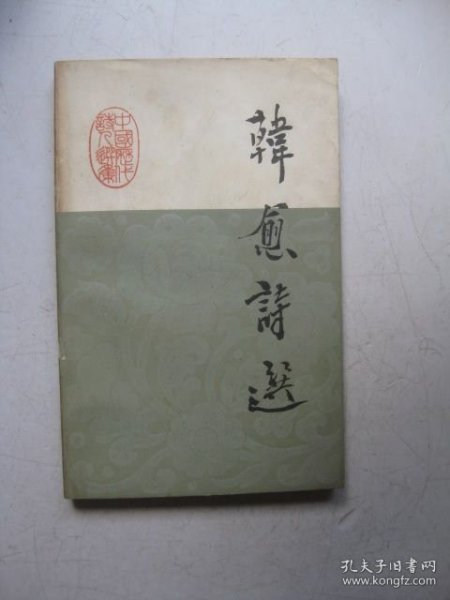 韓愈詩選
中國歷代
詩人選集
孔夫子旧书网
www.kongfz.com